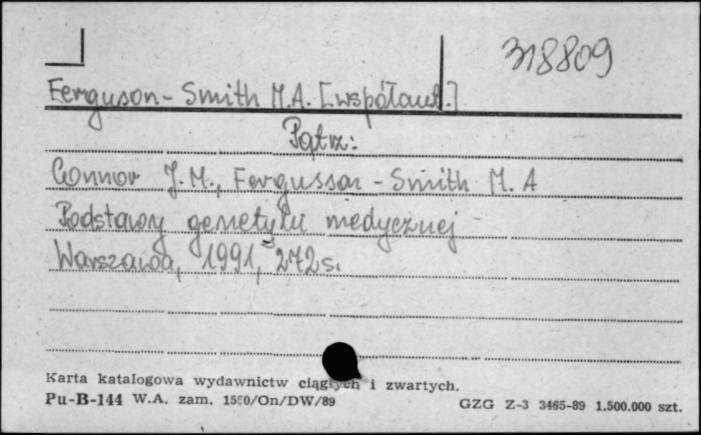 318809
Ferguson-Smith M.A. [współaut.]
Patrz:
Connor J.M., Fergusson-Smith M.A
Podstawy genetyki medycznej
Warszawa, 1991, 272 s.
Karta katalogowa wydawnictw ciągłych i zwartych.
Pu-B-144 W.A. zam. 1550/On/DW/89 GZG Z-3 3465-89 1.500.000 szt.